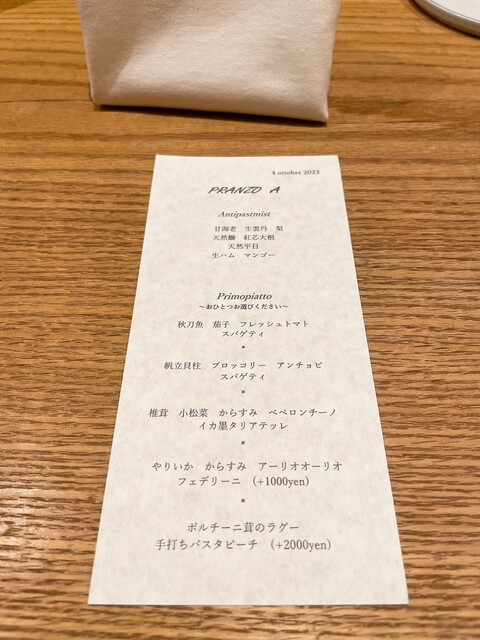 4 ottobre 2023
PRANZO A
Antipastmist
甘海老 生雲丹 梨
天然鰤 紅芯大根
天然平目
生ハム マンゴー
Primopiatto
～おひとつお選びください～
秋刀魚 茄子 フレッシュトマト
スパゲティ
*
帆立貝柱 ブロッコリー アンチョビ
スパゲティ
*
椎茸 小松菜 からすみ ペペロンチーノ
イカ墨タリアテッレ
*
やりいか からすみ アーリオオーリオ
フェデリーニ (+1000yen)
*
ポルチーニ茸のラグー
手打ちパスタピーチ (+2000yen)